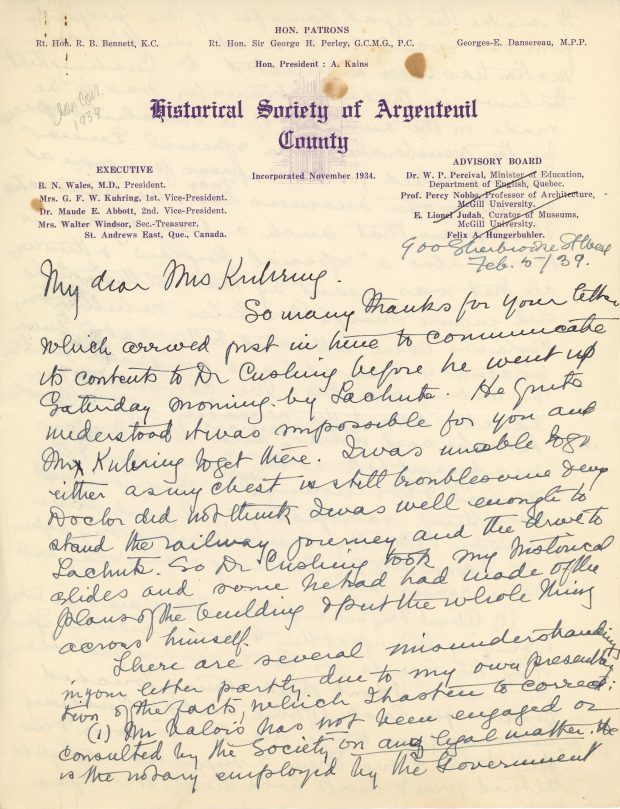 HON. PATRONS
Rt. Hon. R. B. Bennett, K.C.
Rt. Hon. Sir George H. Perley, G.C.M.G., P.C.
Georges-E. Dansereau, M.P.P.
Hon. President : A. Kains
1939
Historical Society of Argenteuil
County
EXECUTIVE
B. N. Wales, M.D., President.
Mrs. G. F. W. Kuhring, 1st. Vice-President.
Dr. Maude E. Abbott, 2nd. Vice-President.
Mrs. Walter Windsor, Sec.-Treasurer.
St. Andrews East, Que., Canada.
Incorporated November 1934.
ADVISORY BOARD
Dr. W. P. Percival, Minister of Education,
Department of English, Quebec.
Prof. Percy Nobbs, Professor of Architecture,
McGill University.
E. Lionel Judah, Curator of Museums,
McGill University.
Felix A. Hungerbuhler.
900 Sherbrooke St West
Feb. 5/39.
My dear Mrs Kuhring.
So many thanks for your letter
which arrived just in time to communicate
its contents to Dr Cushing before he went up
Saturday morning by Lachute. He quite
understood it was impossible for you and
Mr Kuhring to get there. I was unable to go
either as my chest is still troublesome & my
Doctor did not think I was well enough to
stand the railway journey and the drive to
Lachute. So Dr Cushing took my historical
slides and some he had had made of the
plans of the building & put the whole thing
across himself.
There are several misunderstandings
in your letter partly due to my own presenta-
tion of the facts, which I hasten to correct:
(1) Mr Valois has not been engaged or
consulted by the Society on any legal matter. He
is the notary employed by the Government